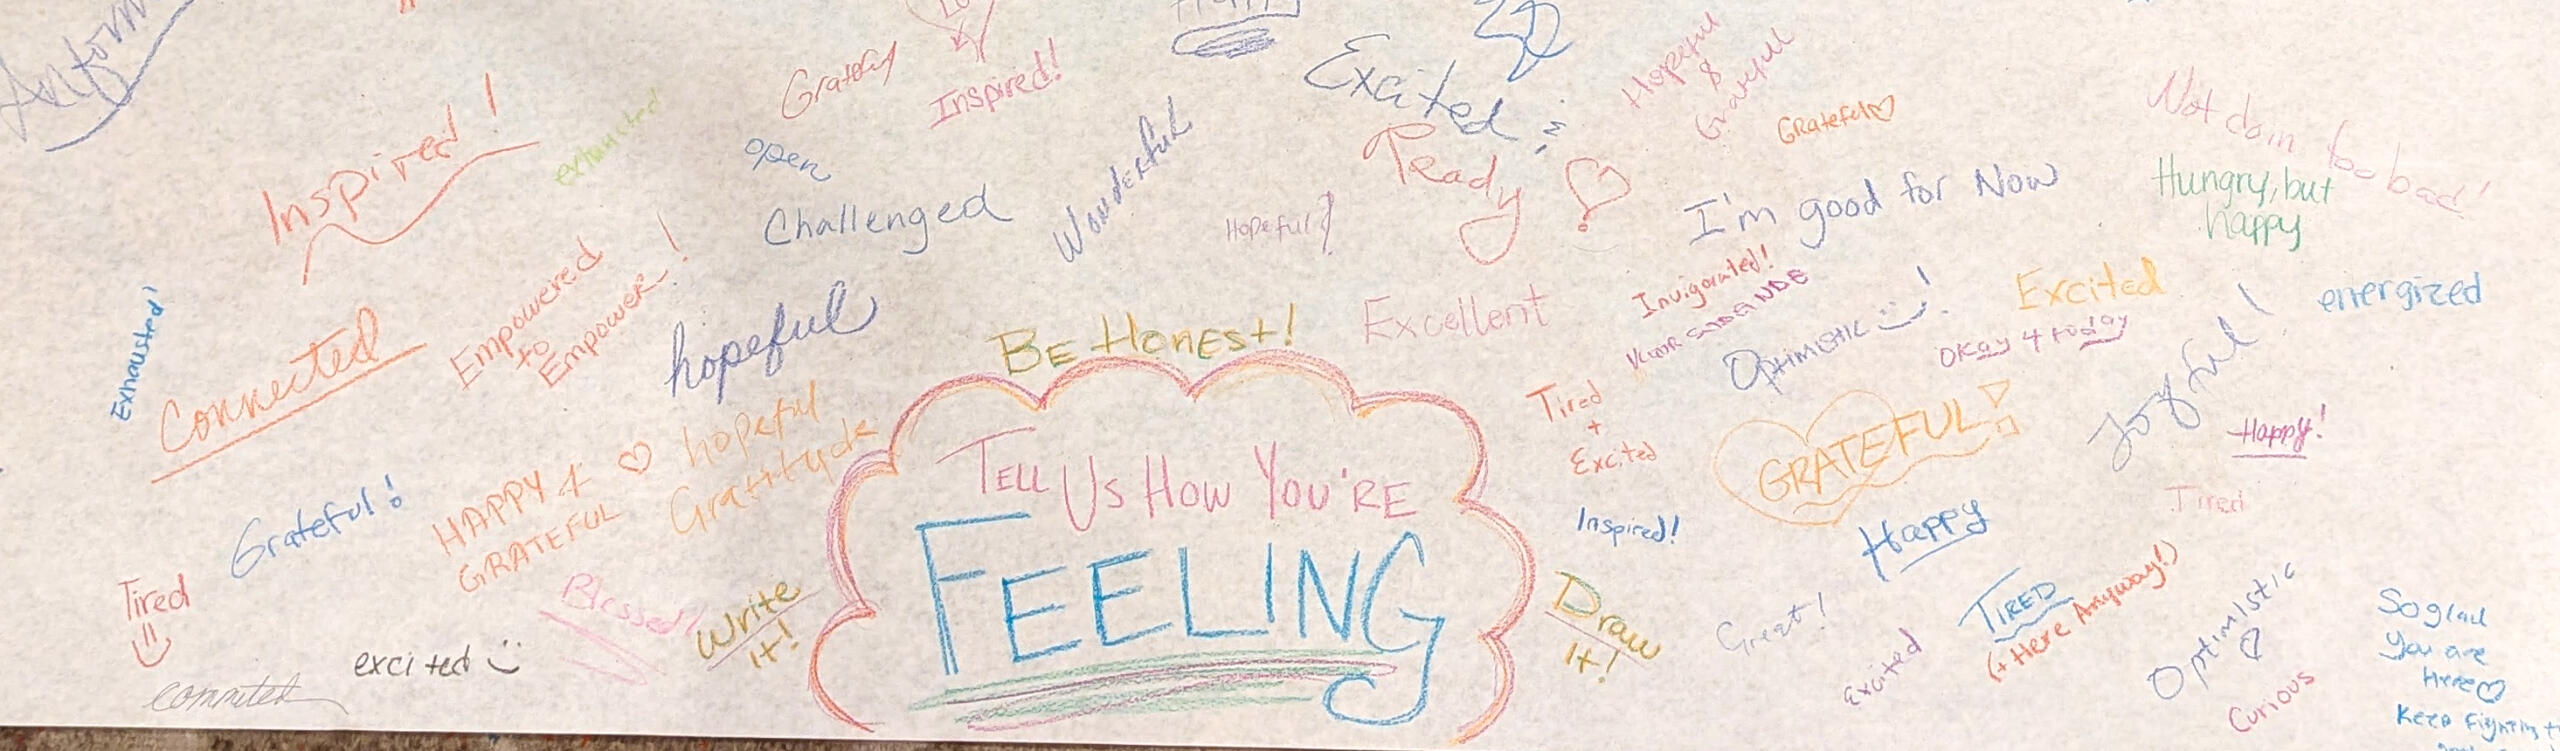 Inspired!
exhausted
Grateful
Inspired!
open
Challenged
Wonderful
Hopeful!
Excited &
Ready
Hopeful
&
Grateful
Grateful
I'm good for Now
Not doin too bad!
Hungry, but
happy
Exhausted!
Connected
Empowered
to
Empower!
hopeful
BE HONEST!
Excellent
Invigorated!
OPTIMISTIC
Excited
OKay 4 today
Joyful!
energized
Happy!
Grateful!
HAPPY +
GRATEFUL
hopeful
TELL US HOW YOU'RE
FEELING
Tired
+
Excited
Inspired!
GRATEFUL!
Happy
Tired
Tired
excited
commited
Blessed!
Write
it!
Draw
It!
Great!
Excited
TIRED
(+ Here Anyway!)
Optimistic
Curious
So glad
you are
Here
Keep